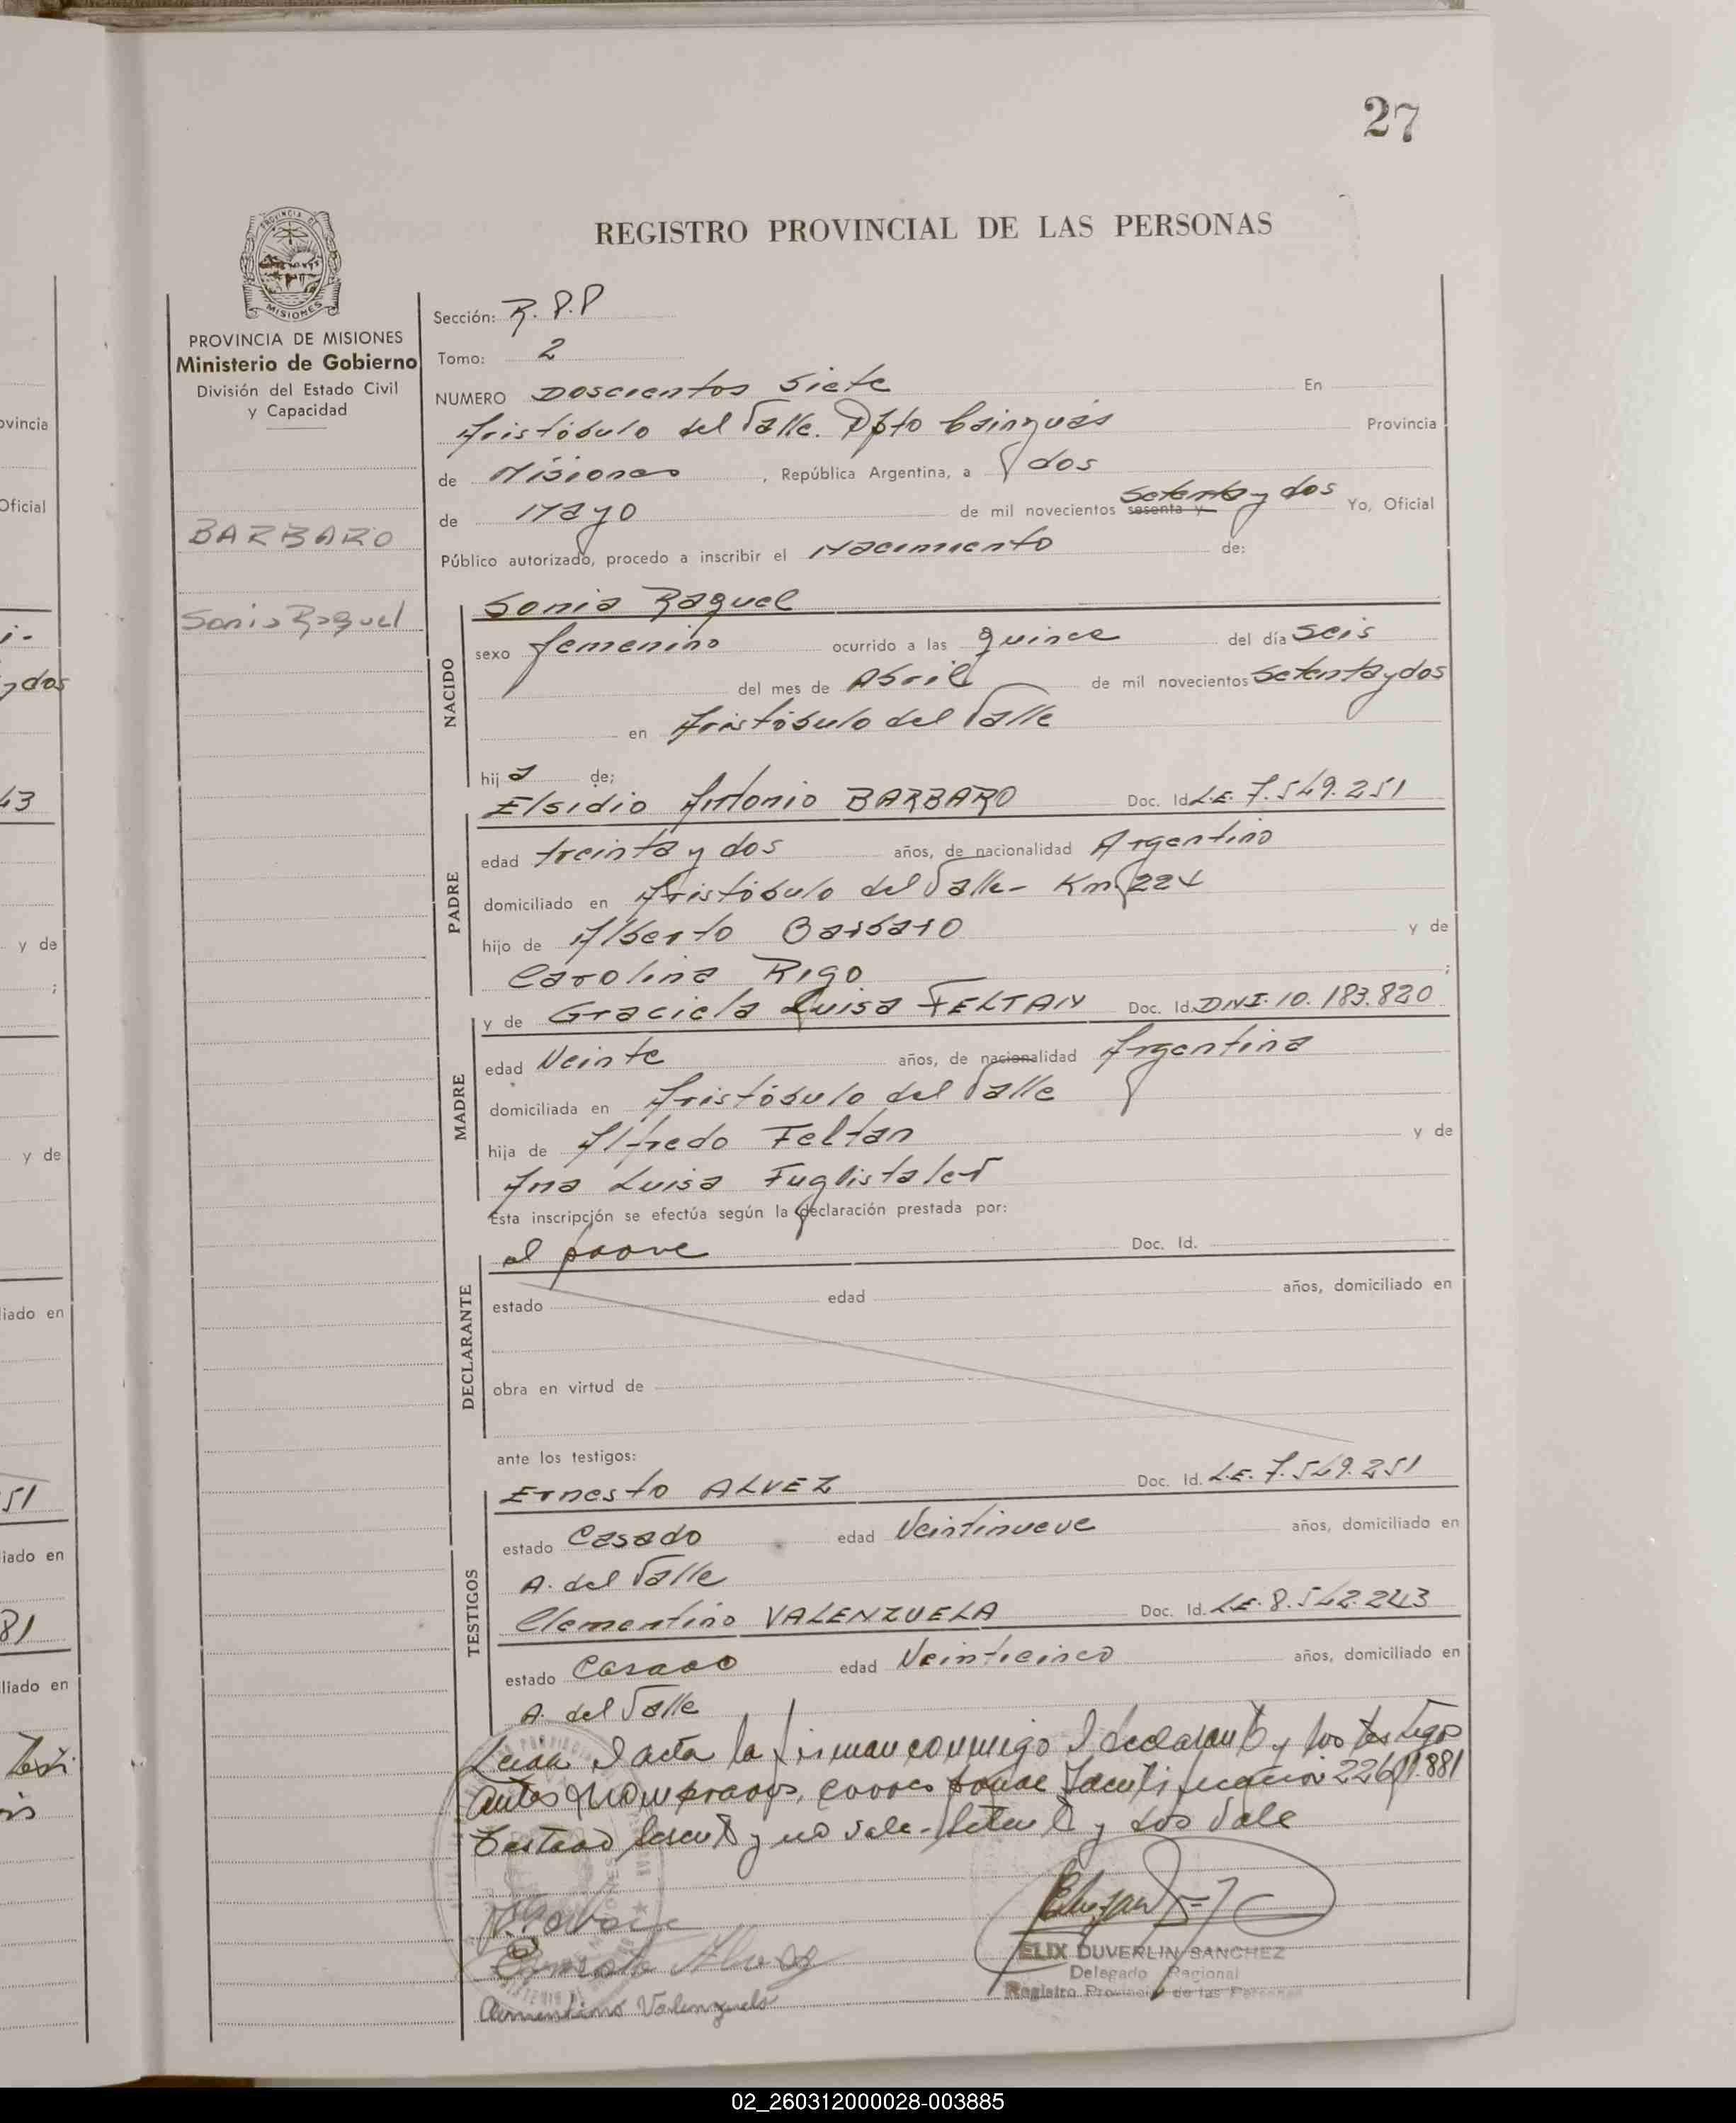 27
REGISTRO PROVINCIAL DE LAS PERSONAS
PROVINCIA DE MISIONES
Ministerio de Gobierno
División del Estado Civil
y Capacidad
BARBARO
Sonia Raquel
Sección: R.P.P
Tomo: 2
NUMERO Doscientos siete En
Aristóbulo del Valle. Dpto Cainguás Provincia
de Misiones, República Argentina, a dos
de Mayo de mil novecientos sesenta y setenta y dos Yo, Oficial
Público autorizado, procedo a inscribir el Nacimiento de:
NACIDO
Sonia Raquel
sexo femenino ocurrido a las quince del día seis
del mes de Abril de mil novecientos setenta y dos
en Aristóbulo del Valle
hija de;
PADRE
Elsidio Antonio BARBARO Doc. Id. L.E. 7.549.251
edad treinta y dos años, de nacionalidad Argentino
domiciliado en Aristóbulo del Valle - Km 224
hijo de Alberto Barbaro y de
Carolina Rigo ;
MADRE
y de Graciela Luisa FELTAN Doc. Id. DNI. 10.183.820
edad Veinte años, de nacionalidad Argentina
domiciliada en Aristóbulo del Valle
hija de Alfredo Feltan y de
Ana Luisa Fuglistaler
Esta inscripción se efectúa según la declaración prestada por:
DECLARANTE
el padre Doc. Id.
estado edad años, domiciliado en
obra en virtud de
ante los testigos:
TESTIGOS
Ernesto ALVEZ Doc. Id. L.E. 7.549.251
estado Casado edad Veintinueve años, domiciliado en
A. del Valle
Clementino VALENZUELA Doc. Id. L.E. 8.542.243
estado Casado edad Veinticinco años, domiciliado en
A. del Valle
Leida el acta la firman conmigo el declarante y los testigos
antes nombrados, corresponde Identificación 22611.881
Testado sesenta y no vale - setenta y dos Vale
Ernesto Alvez
Clementino Valenzuela
ELIX DUVERLIN SANCHEZ
Delegado Regional
Registro Provincial de las Personas
02_260312000028-003885